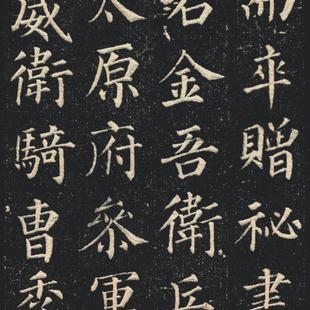 卒贈祕書
右金吾衛兵
太原府叅軍
威衛騎曺